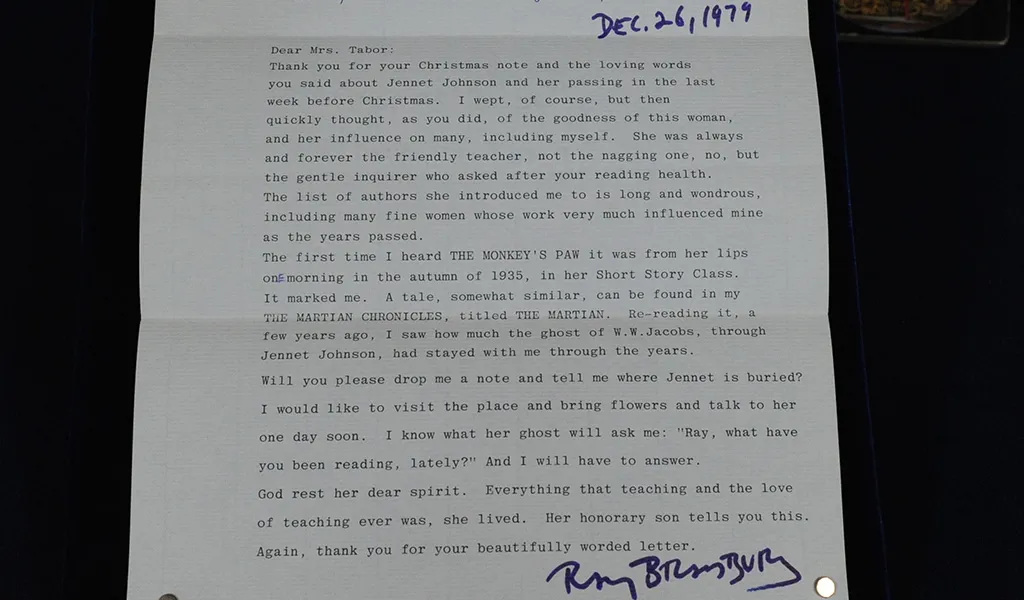 DEC. 26, 1979
Dear Mrs. Tabor:
Thank you for your Christmas note and the loving words
you said about Jennet Johnson and her passing in the last
week before Christmas. I wept, of course, but then
quickly thought, as you did, of the goodness of this woman,
and her influence on many, including myself. She was always
and forever the friendly teacher, not the nagging one, no, but
the gentle inquirer who asked after your reading health.
The list of authors she introduced me to is long and wondrous,
including many fine women whose work very much influenced mine
as the years passed.
The first time I heard THE MONKEY'S PAW it was from her lips
onE morning in the autumn of 1935, in her Short Story Class.
It marked me. A tale, somewhat similar, can be found in my
THE MARTIAN CHRONICLES, titled THE MARTIAN. Re-reading it, a
few years ago, I saw how much the ghost of W.W.Jacobs, through
Jennet Johnson, had stayed with me through the years.
Will you please drop me a note and tell me where Jennet is buried?
I would like to visit the place and bring flowers and talk to her
one day soon. I know what her ghost will ask me: "Ray, what have
you been reading, lately?" And I will have to answer.
God rest her dear spirit. Everything that teaching and the love
of teaching ever was, she lived. Her honorary son tells you this.
Again, thank you for your beautifully worded letter.
Ray BRADBURY